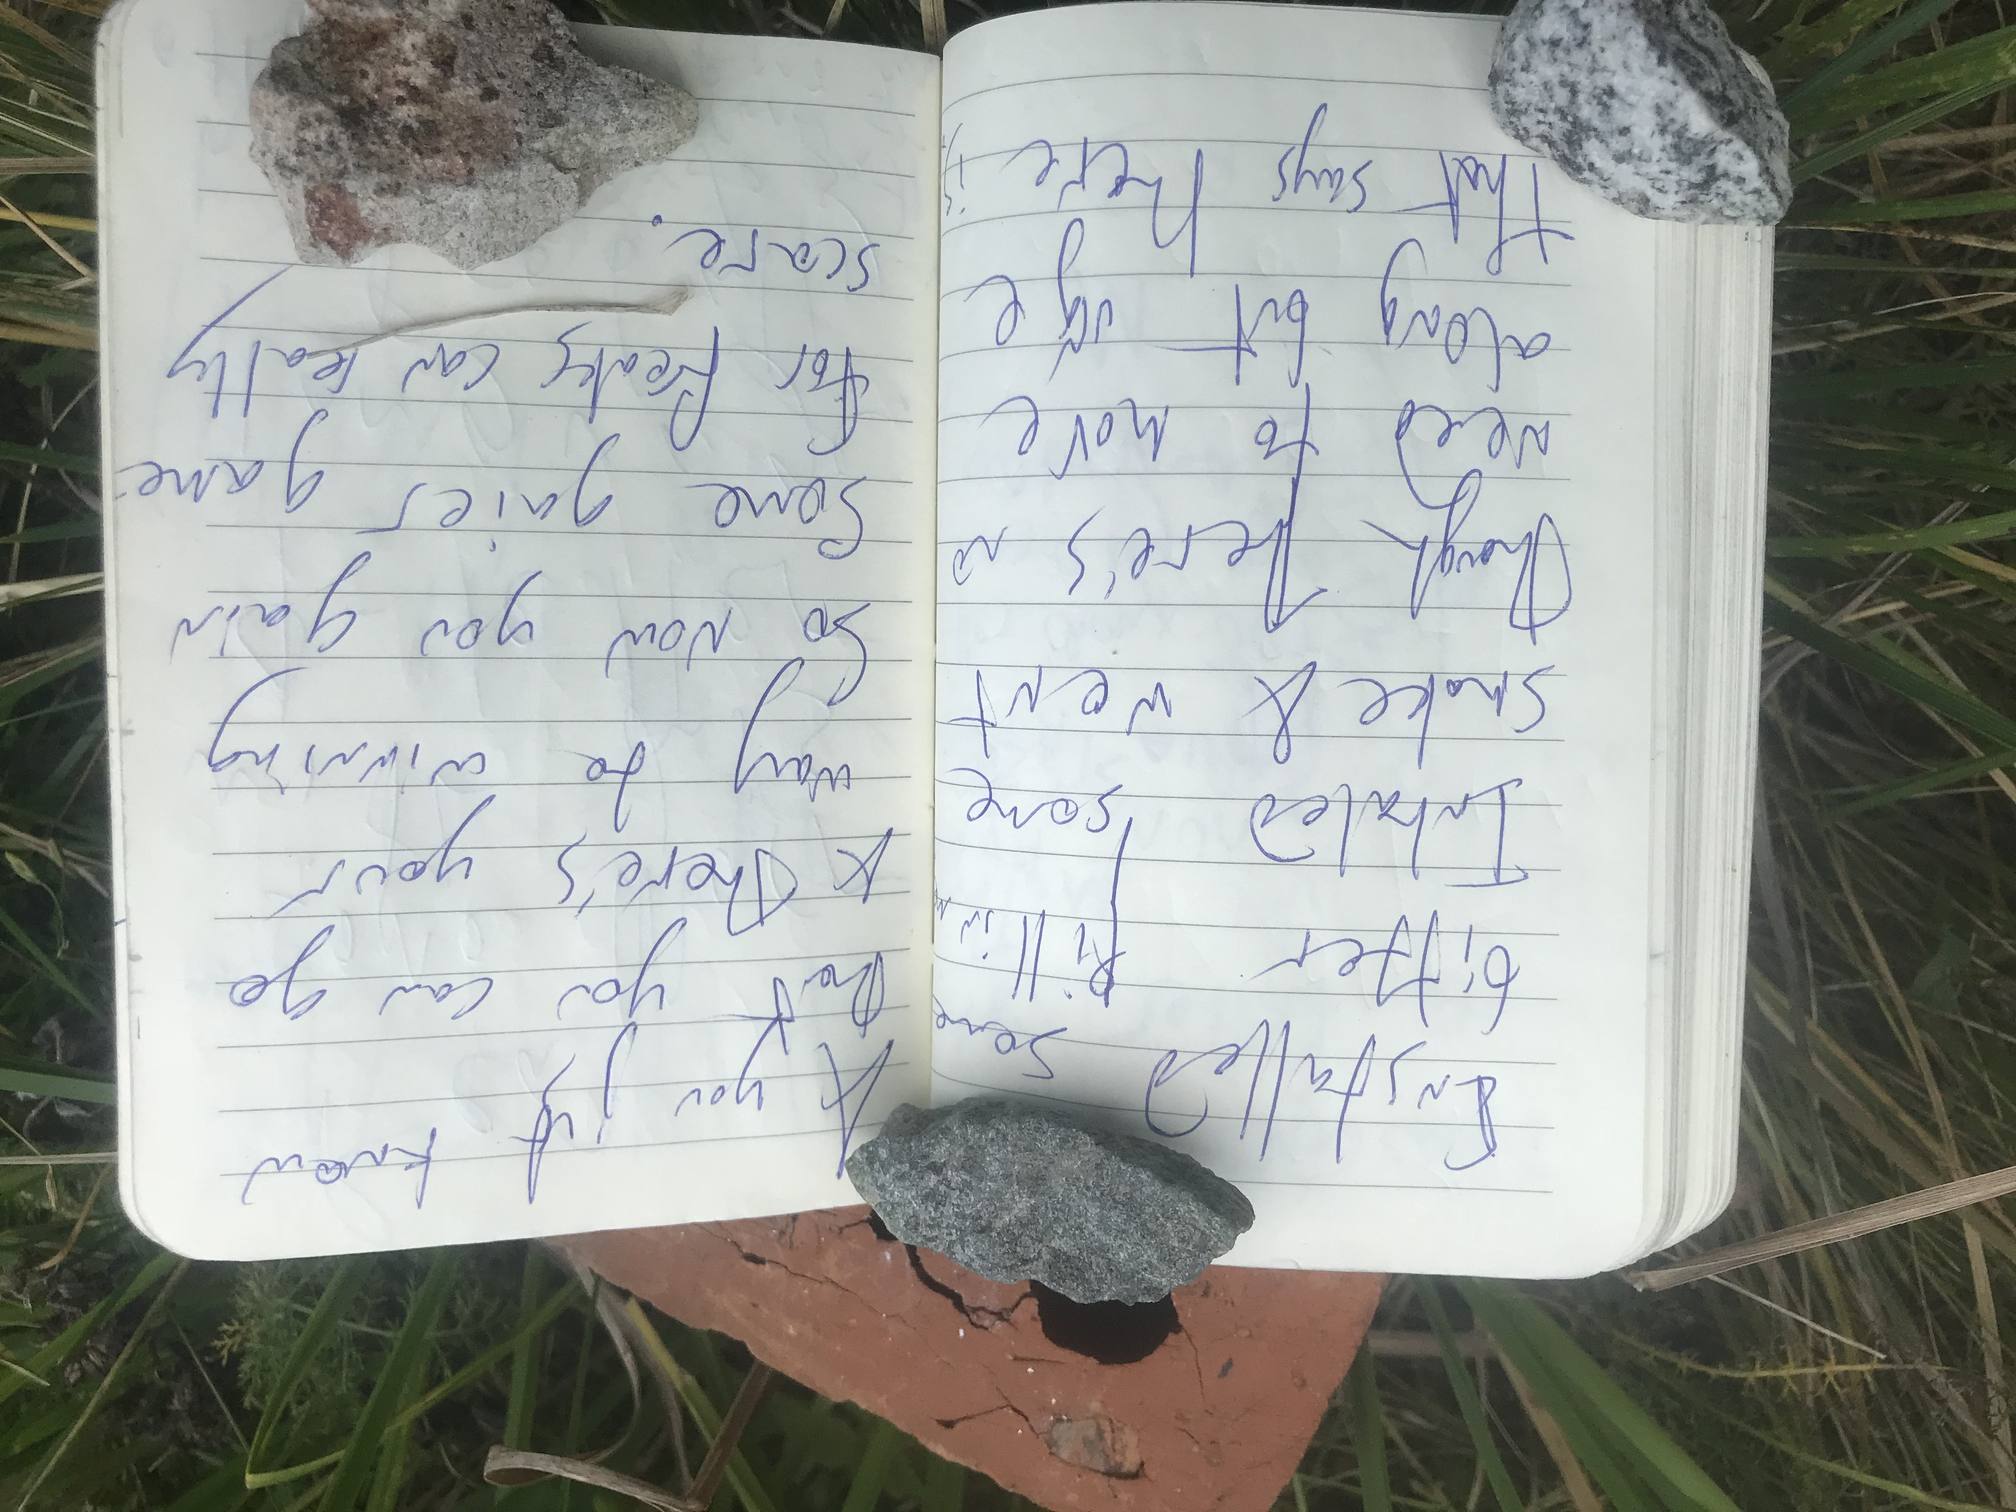 Installed some
bitter pill in
Inhaled some
smoke & went
though there's no
need to move
along but urge
that says here is
& you just know
that you can go
& there's your
way to winning
So now you gain
some gaier game
for freaks can really
scare.